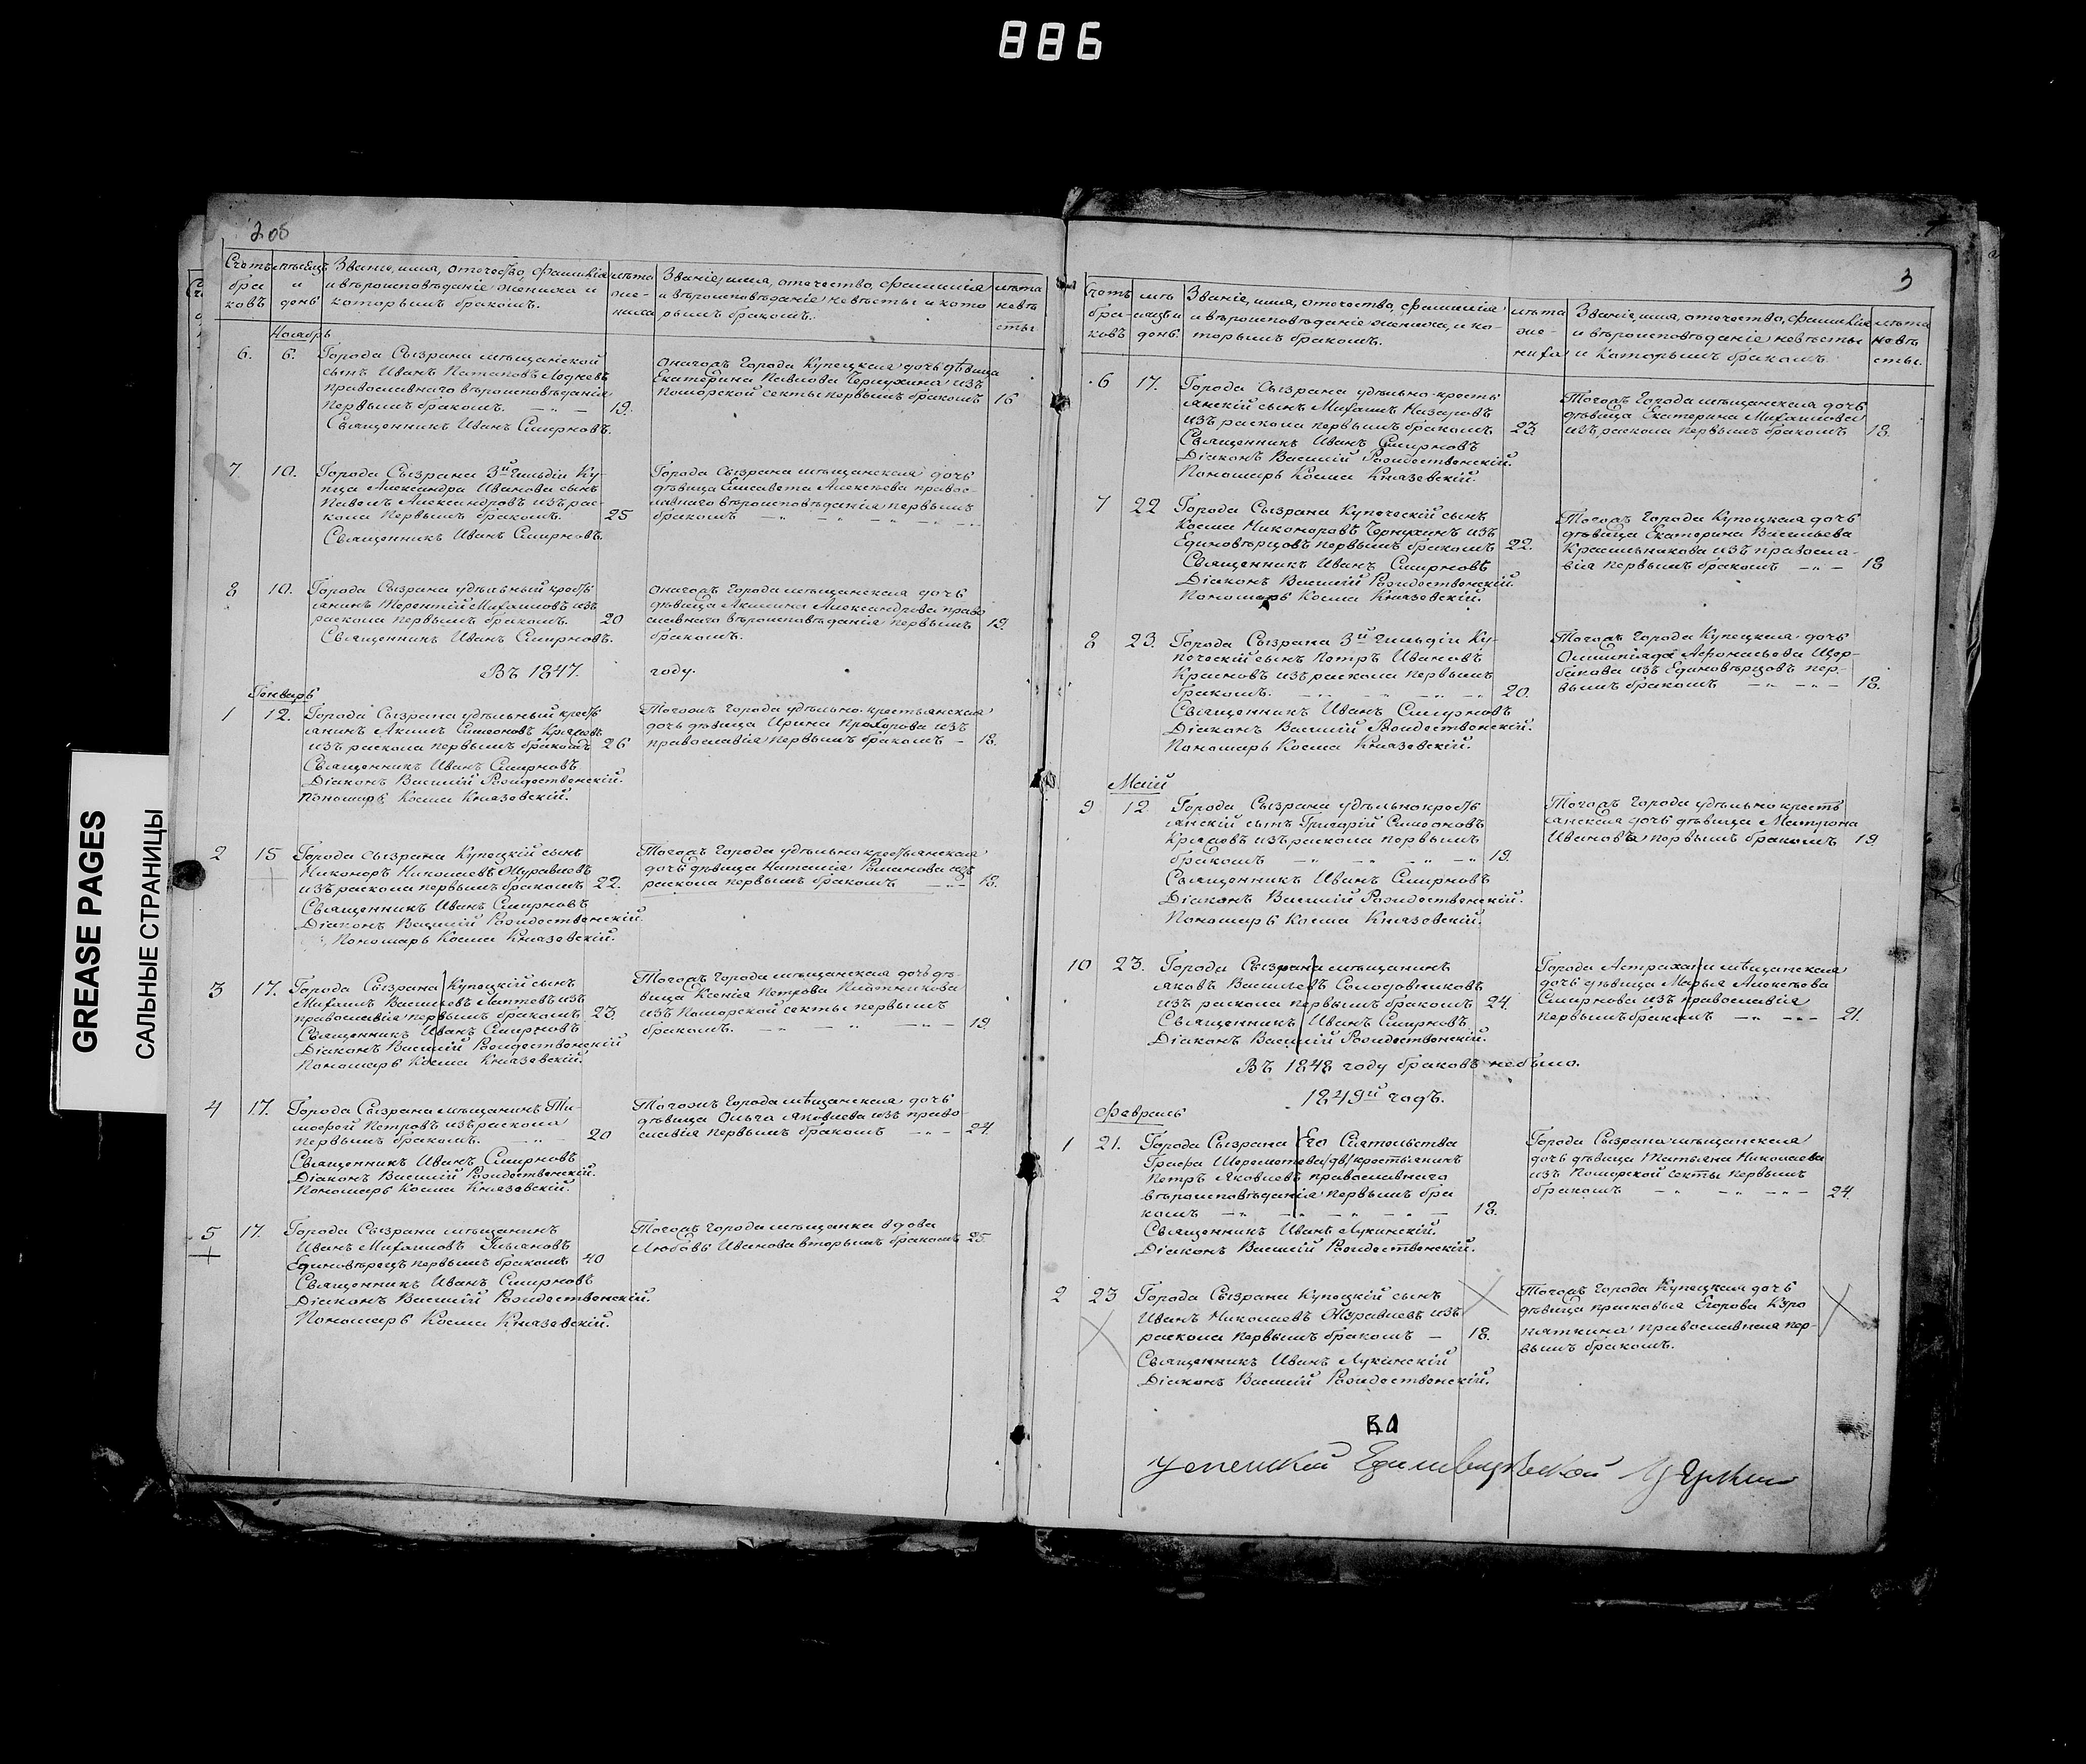 886
GREASE PAGES
САЛЬНЫЕ СТРАНИЦЫ
205
Счетъ бра ковъ
мѣсяцъ и день
Званіе, имя, отечество, фамилія
и вѣроисповѣданіе жениха и
которымъ бракомъ.
лѣта же- ниха
Званіе, имя, отечество, фамилія
и вѣроисповѣданіе невѣсты и кото
рымъ бракомъ.
лѣта невѣ сты
Ноябрь
6. 6. Города Сызрана мѣщанской
сынъ Иванъ Потаповъ
православнаго вѣроисповѣданія
первымъ бракомъ. 19.
Священникъ Иванъ Смирновъ.
оногожъ города Купецкая дочь дѣвица
Екатерина Павлова Чернухина изъ
Поморской секты первымъ бракомъ 16
7. 10. Города Сызрана 3й Гильдіи Ку-
пца Александра Иванова сынъ
Павелъ Александровъ изъ рас-
кола первымъ бракомъ. 25
Священникъ Иванъ Смирновъ.
Города Сызрана мѣщанская дочь
дѣвица Елисавета Алексѣева правос-
лавнаго вѣроисповѣданія первымъ
бракомъ
8 10. Города Сызрана удѣльный кресть
янинъ Терентій Михаиловъ изъ
раскола первымъ бракомъ. 20
Священникъ Иванъ Смирновъ.
оногожъ города мѣщанская дочь
дѣвица Акилина Александрова право
славнаго вѣроисповѣданія первымъ 19.
бракомъ.
Въ 1847. году.
Генварь
1 12. Города Сызрана удѣльный кресть
янинъ Акимъ Симеоновъ Круповъ
изъ раскола первымъ бракомъ 26
Священникъ Иванъ Смирновъ
Діаконъ Василій Рождественскій.
Пономарь Косма Князевскій.
Тогожъ города удѣльно-крестьянская
дочь дѣвица Ирина Прохорова изъ
православія первымъ бракомъ – 18.
2 15 Города Сызрана Купецкій сынъ
Никоноръ Николаевъ Журавлевъ
изъ раскола первымъ бракомъ 22.
Священникъ Иванъ Смирновъ
Діаконъ Василій Рождественскій.
Пономарь Косма Князевскій.
Тогожъ города удѣльнокрестьянская
дочь дѣвица Наталія Романова изъ
раскола первымъ бракомъ 18.
3 17. Города Сызрана Купецкій сынъ
Михаилъ Васильевъ Лаптевъ изъ
православія первымъ бракомъ 23.
Священникъ Иванъ Смирновъ
Діаконъ Василій Рождественскій
Пономарь Косма Князевскій.
Тогожъ города мѣщанская дочь дѣ-
вица Ксенія Петрова Плотникова
изъ Поморской секты первымъ
бракомъ. 19.
4 17. Города Сызрана мѣщанинъ Ти-
мофей Петровъ изъ раскола
первымъ бракомъ. 20
Священникъ Иванъ Смирновъ
Діаконъ Василій Рождественскій.
Пономарь Косма Князевскій.
Тогожъ города мѣщанская дочь
дѣвица Ольга Яковлева изъ право-
славія первымъ бракомъ 24.
5 17. Города Сызрана мѣщанинъ
Иванъ Михаиловъ Ульяновъ
Единовѣрецъ первымъ бракомъ 40
Священникъ Иванъ Смирновъ
Діаконъ Василій Рождественскій.
Пономарь Косма Князевскій.
Тогожъ города мѣщанка вдова
Любовь Иванова вторымъ бракомъ 25.
3
Счетъ бра- ковъ
мѣ сяцъ и день.
Званіе, имя, отечество, фамилія
и вѣроисповѣданіе жениха, и ко-
торымъ бракомъ.
лѣта же- ниха
Званіе, имя, отечество, фамилія
и вѣроисповѣданіе невѣсты
и которымъ бракомъ.
лѣта невѣ сты.
6 17. Города Сызрана удѣльно-кресть
янскій сынъ Михаилъ Назаровъ
изъ раскола первымъ бракомъ 23.
Священникъ Иванъ Смирновъ
Діаконъ Василій Рождественскій.
Пономарь Косма Князевскій.
Тогожъ города мѣщанская дочь
дѣвица Екатерина Михаилова
изъ раскола первымъ бракомъ 18.
7 22 Города Сызрана Купеческій сынъ
Косма Никоноровъ Чернухинъ изъ
Единовѣрцовъ первымъ бракомъ 22.
Священникъ Иванъ Смирновъ
Діаконъ Василій Рождественскій.
Пономарь Косма Князевскій.
Тогожъ города Купецкая дочь
дѣвица Екатерина Васильева
Красильникова изъ правосла-
вія первымъ бракомъ 18
8 23. Города Сызрана 3й Гильдіи Ку-
печескій сынъ Петръ Ивановъ
Красновъ изъ раскола первымъ
бракомъ. 20.
Священникъ Иванъ Смирновъ
Діаконъ Василій Рождественскій.
Пономарь Косма Князевскій.
Тогожъ города Купецкая дочь
Олимпіада Афонасьева Щер-
бакова изъ Единовѣрцовъ пер-
вымъ бракомъ 18.
Маій
9 12 Города Сызрана удѣльнокресть
янскій сынъ Григорій Симеоновъ
Круповъ изъ раскола первымъ
бракомъ 19.
Священникъ Иванъ Смирновъ
Діаконъ Василій Рождественскій.
Пономарь Косма Князевскій.
Тогожъ города удѣльно кресть
янская дочь дѣвица Матрона
Иванова первымъ бракомъ 19
10 23. Города Сызрана мѣщанинъ
Яковъ Васильевъ Солодовниковъ
изъ раскола первымъ бракомъ 24.
Священникъ Иванъ Смирновъ
Діаконъ Василій Рождественскій.
Города Астрахани мѣщанская
дочь дѣвица Марья Алексѣева
Смирнова изъ православія
первымъ бракомъ 21.
Въ 1848 году браковъ небыло.
1849й годъ.
Февраль
1 21. Города Сызрана Его Сіятельства
Графа Шереметева /дв/ крестьянинъ
Петръ Яковлевъ православнаго
вѣроисповѣданія первымъ бра
комъ 18.
Священникъ Иванъ Лукинскій.
Діаконъ Василій Рождественскій.
Города Сызрана мѣщанская
дочь дѣвица Татьяна Николаева
изъ Поморской секты первымъ
бракомъ 24.
2 23 Города Сызрана Купецкій сынъ
Иванъ Николаевъ Журавлевъ изъ
раскола первымъ бракомъ – 18.
Священникъ Иванъ Лукинскій
Діаконъ Василій Рождественскій.
Тогожъ города Купецкая дочь
дѣвица Прасковья Егорова Куро
пяткина православная пер-
вымъ бракомъ.
Успенской Единовѣрческой Церкви